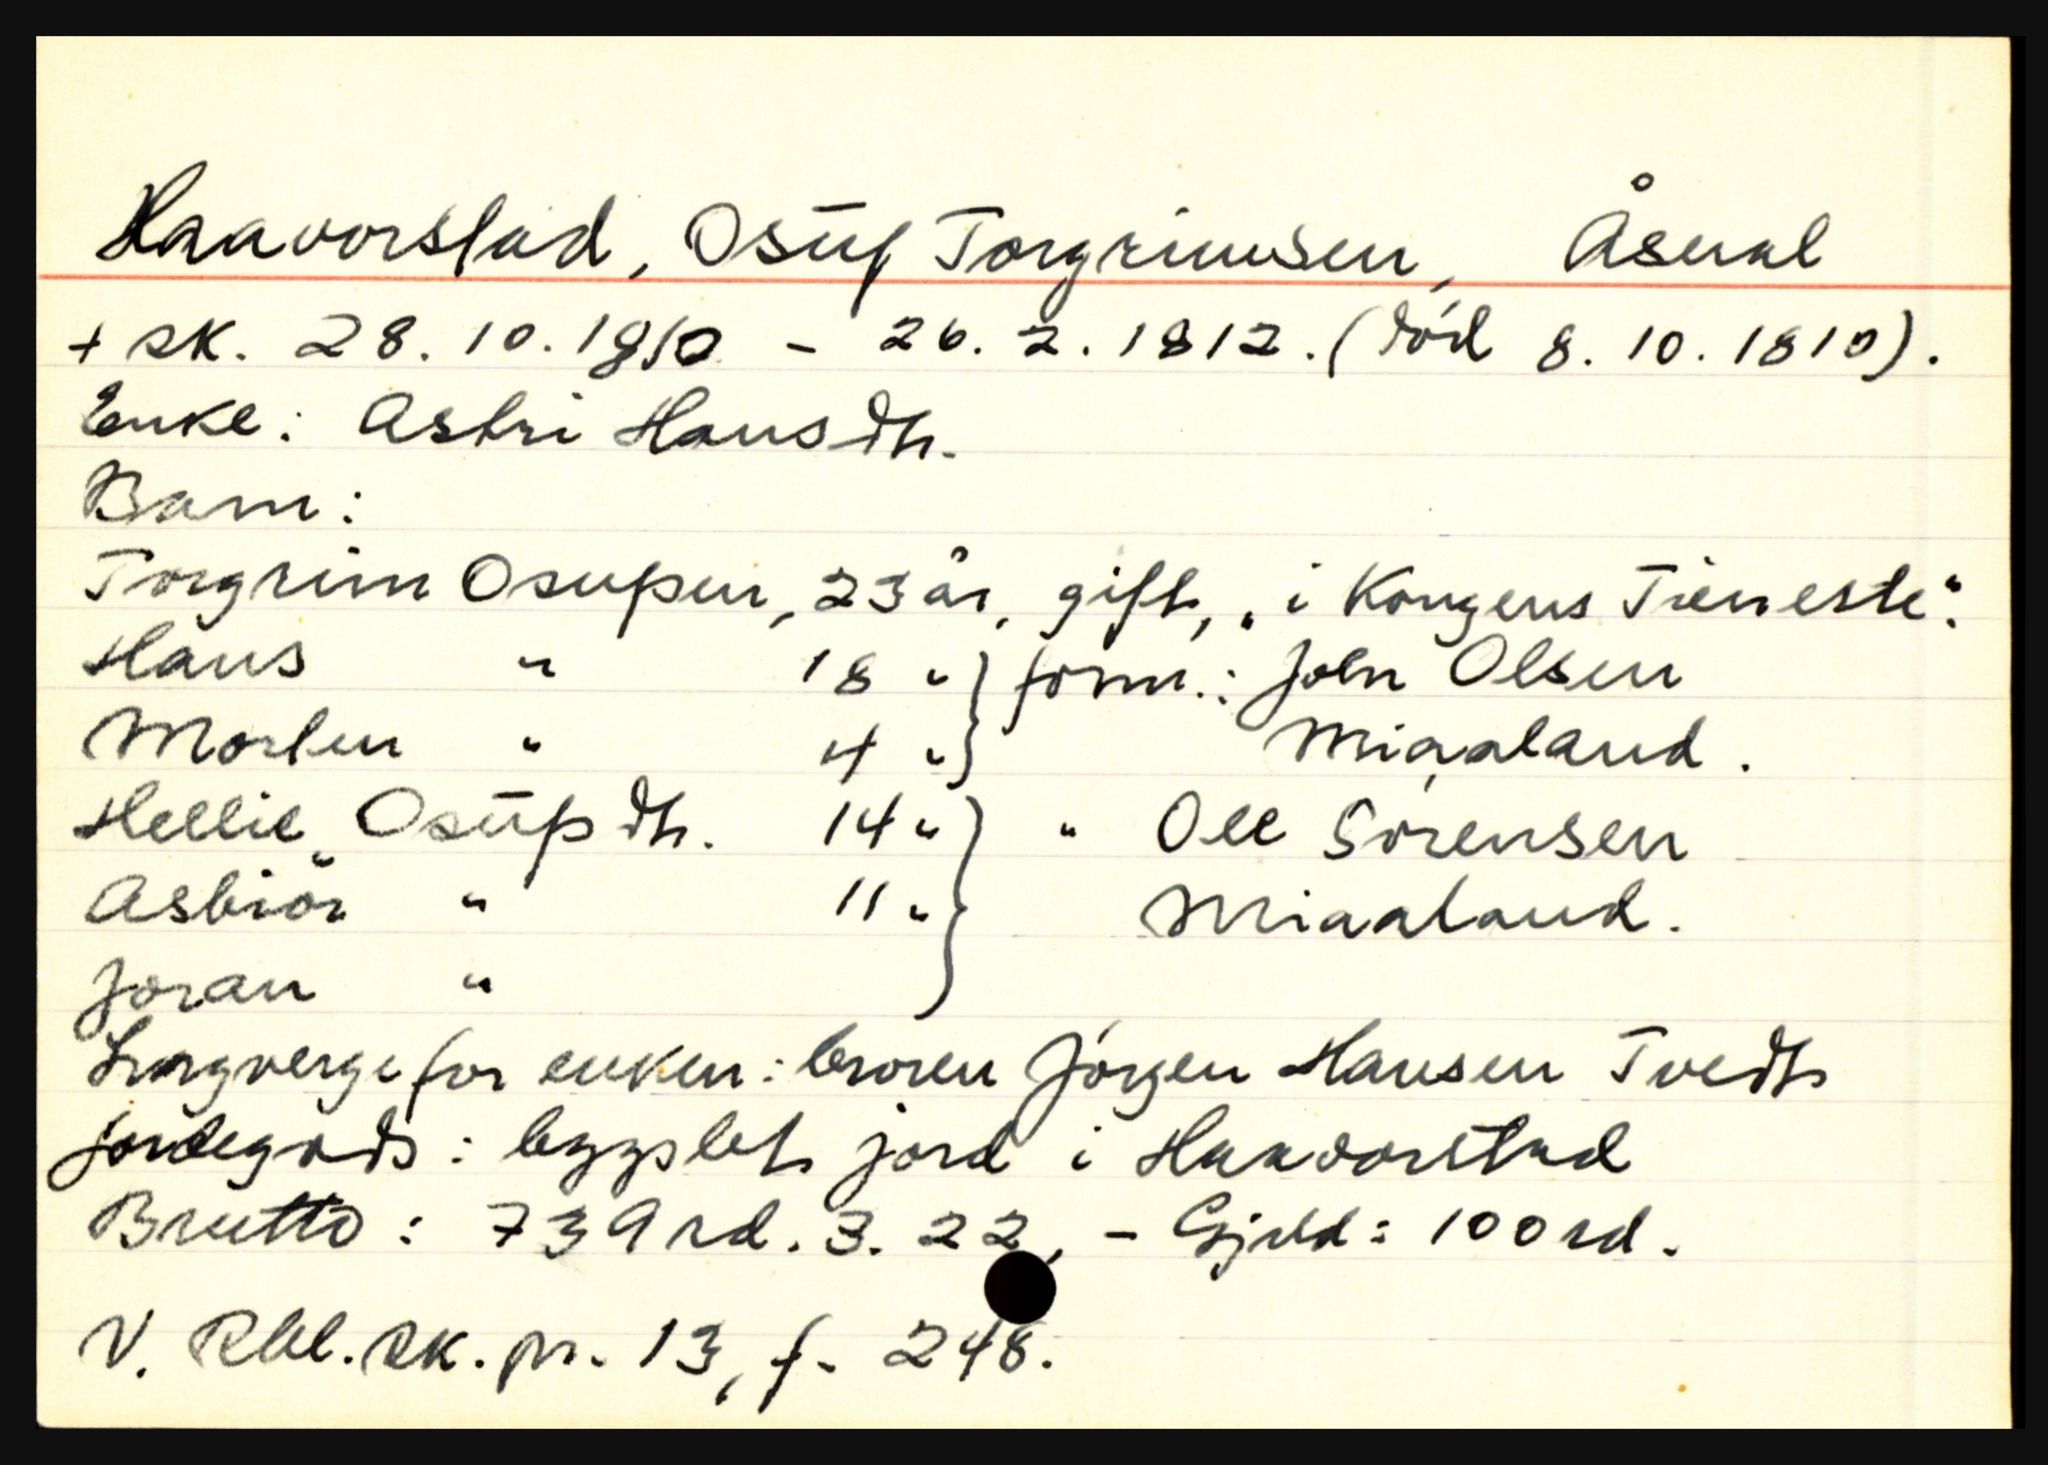 Haavorstad, Osuf Torgrimsen, Åseral
+ sk. 28.10.1810 - 26.2.1812. (död 8.10.1810).
Enke: Astri Hansdtr.
Barn:
Torgrim Osufsen, 23 år, gift, „i Kongens Tieneste“.
Hans " 18 " } form.: John Olsen
Morten " 4 " } Miaaland.
Hellie Osufsdtr. 14 " } " Ole Sörensen
Asbiör " 11 " } Miaaland.
Joran " }
Lagverge for enken: broren Jörgen Hansen Tvedt
jordegods: bygslet jord i Haavorstad
Brutto: 739 rd. 3. 22, - Gjeld: 100 rd.
V. Rbl. sk. pr. 13, f. 248.